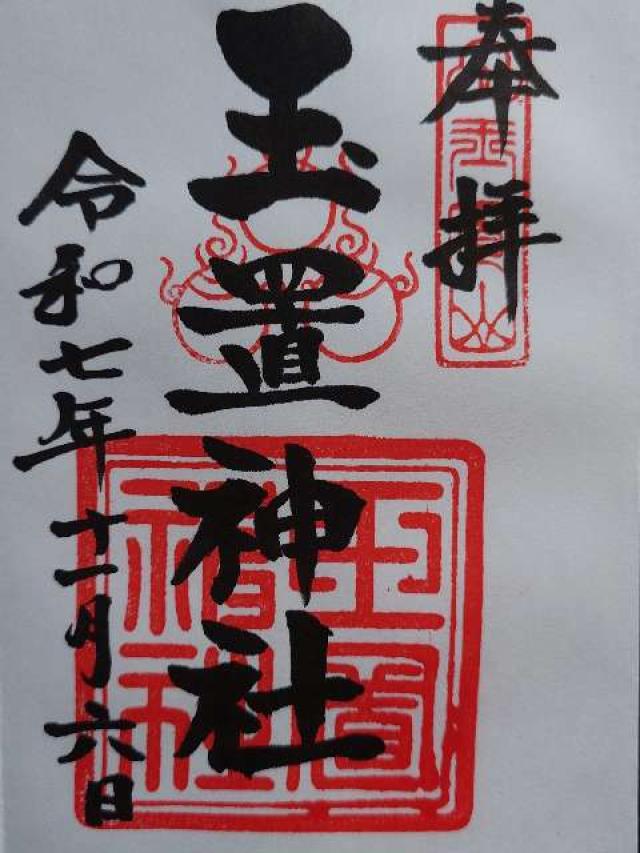 奉拝
玉置神社
令和七年十一月六日
玉置
神社